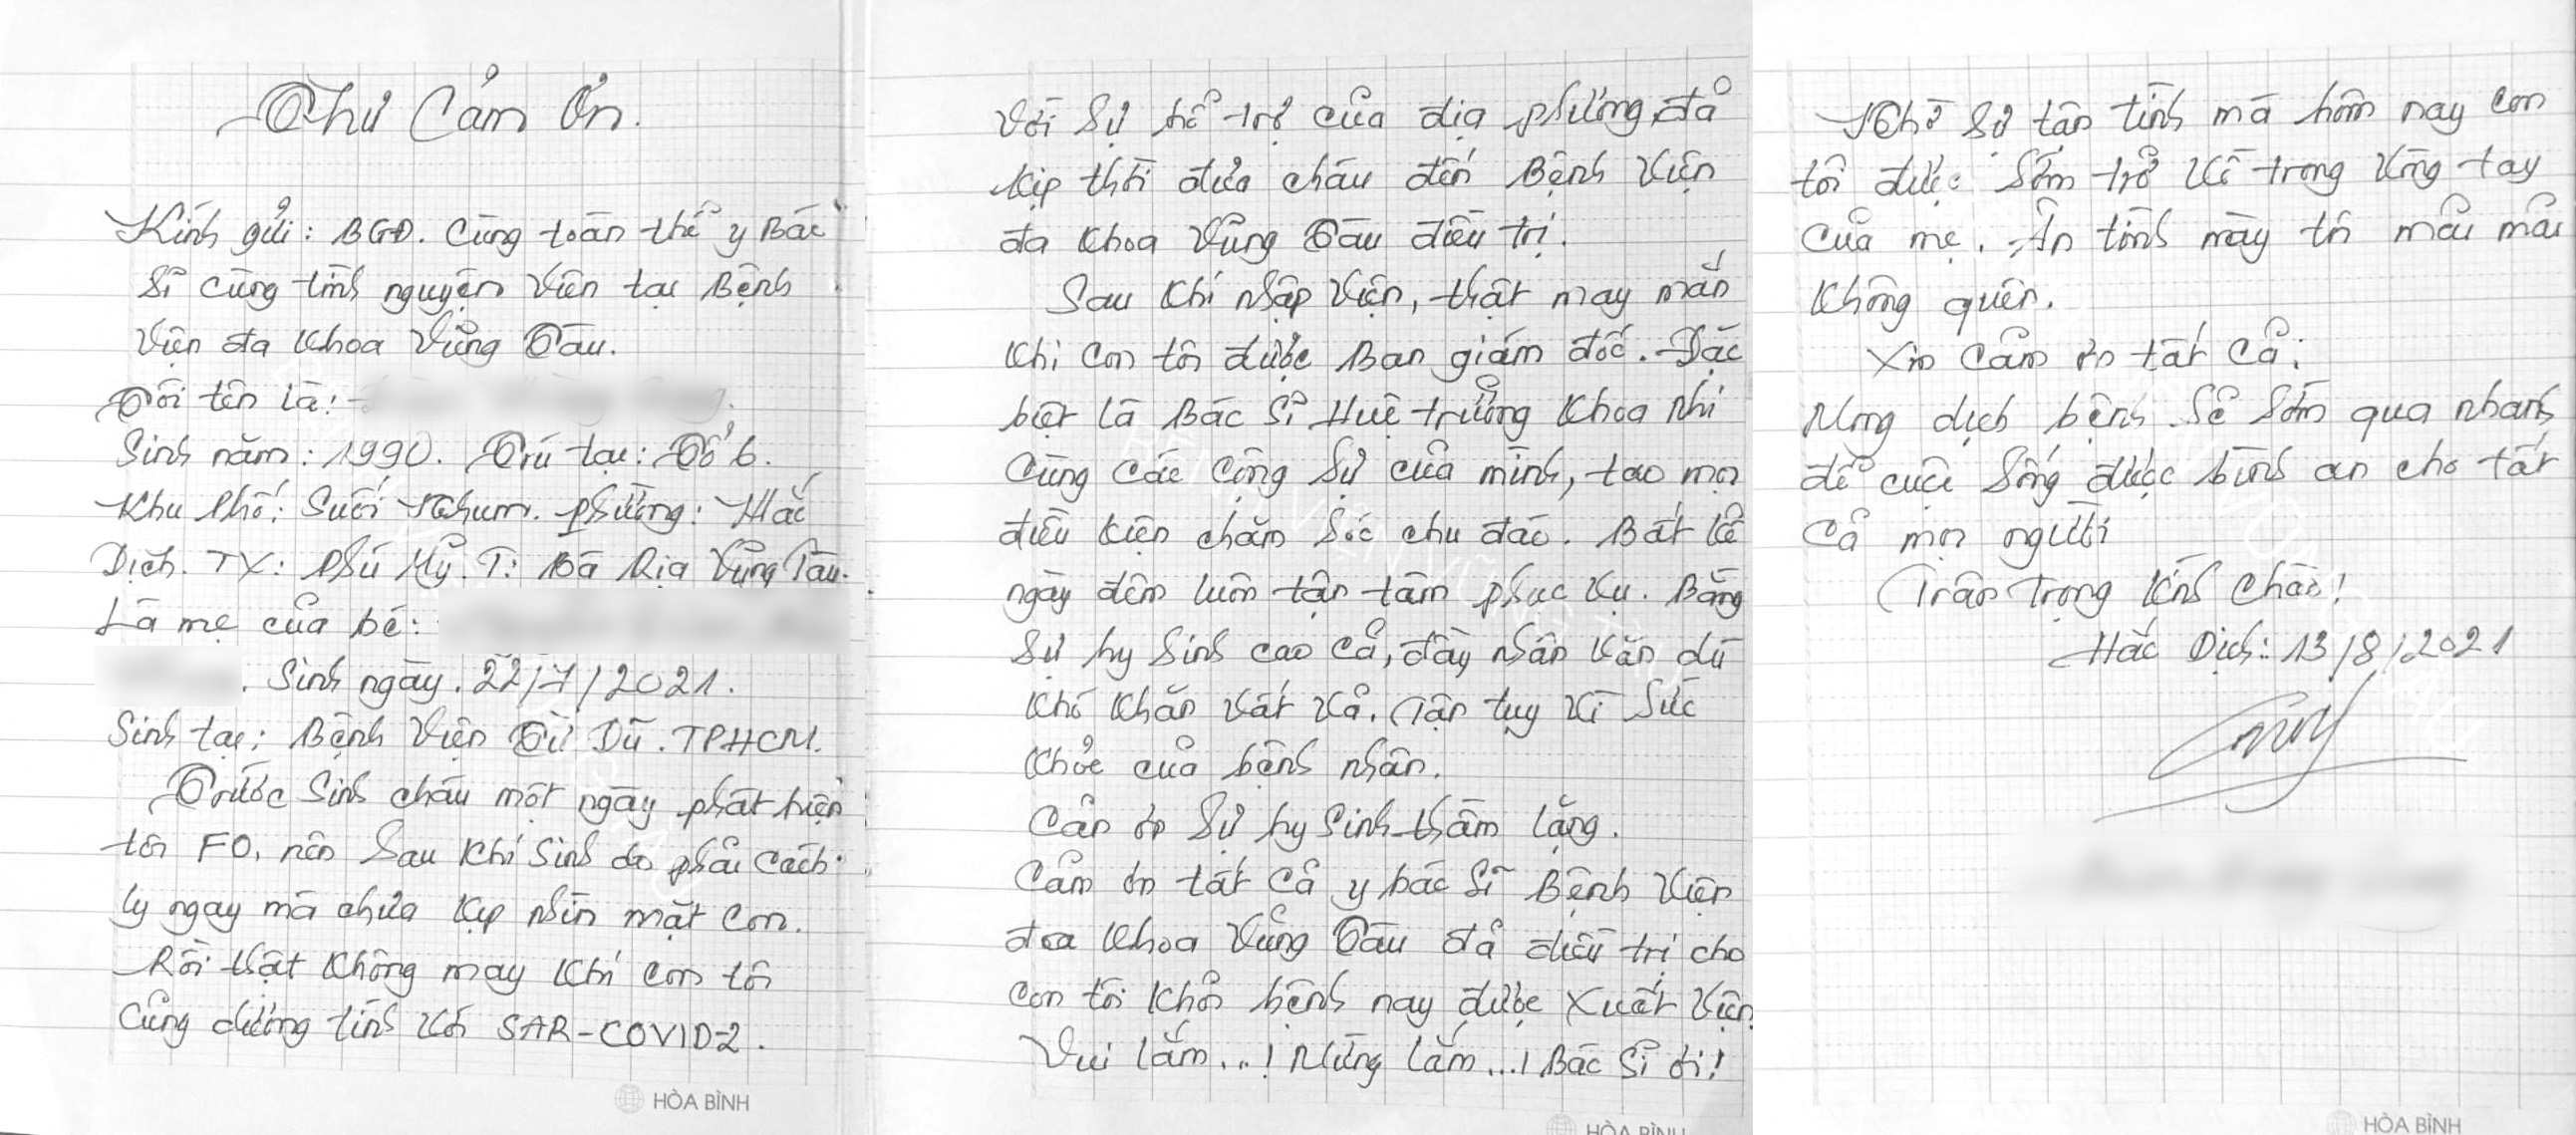 Thư Cảm Ơn.
Kính gửi: BGĐ. Cùng toàn thể y Bác
sĩ cùng tình nguyện viên tại Bệnh
viện đa khoa Vũng Tàu.
Tôi tên là:
Sinh năm: 1990. Trú tại: Tổ 6.
Khu Phố: Suối Nhum. phường: Hắc
Dịch. TX: Phú Mỹ. T: Bà Rịa Vũng Tàu.
Là mẹ của bé:
. Sinh ngày. 22/7/2021.
Sinh tại: Bệnh Viện Từ Dũ. TPHCM.
Trước sinh cháu một ngày phát hiện
tôi F0, nên sau khi sinh do phải cách
ly ngay mà chưa kịp nhìn mặt con.
Rồi thật không may khi con tôi
cũng dương tính với SAR-COVID-2.
HÒA BÌNH
Với sự hổ trợ của địa phương, đả
kịp thời đưa cháu đến Bệnh Viện
đa khoa Vũng Tàu điều trị.
Sau khi nhập viện, thật may mắn
khi con tôi được Ban giám đốc. Đặc
biệt là Bác sĩ Huệ trưởng khoa nhi
cùng các cộng sự của mình, tạo mọi
điều kiện chăm sóc chu đáo. Bất kể
ngày đêm luôn tận tâm phục vụ. Bằng
sự hy sinh cao cả, đầy nhân văn dù
khó khăn vất vả. Tận tụy vì sức
khỏe của bệnh nhân.
Cảm ơn sự hy sinh thầm lặng.
Cảm ơn tất cả y bác sĩ Bệnh Viện
đa khoa Vũng Tàu đả điều trị cho
con tôi khỏi bệnh nay được xuất viện.
Vui lắm...! Mừng lắm...! Bác sĩ ơi!
HÒA BÌNH
Nhờ sự tận tình mà hôm nay con
tôi được sớm trở về trong vòng tay
của mẹ. Ân tình này tôi mãi mãi
không quên.
Xin cảm ơn tất cả:
Mong dịch bệnh sẽ sớm qua nhanh
để cuộc sống được bình an cho tất
cả mọi người
Trân Trọng kính chào!
Hắc Dịch: 13/8/2021
HÒA BÌNH